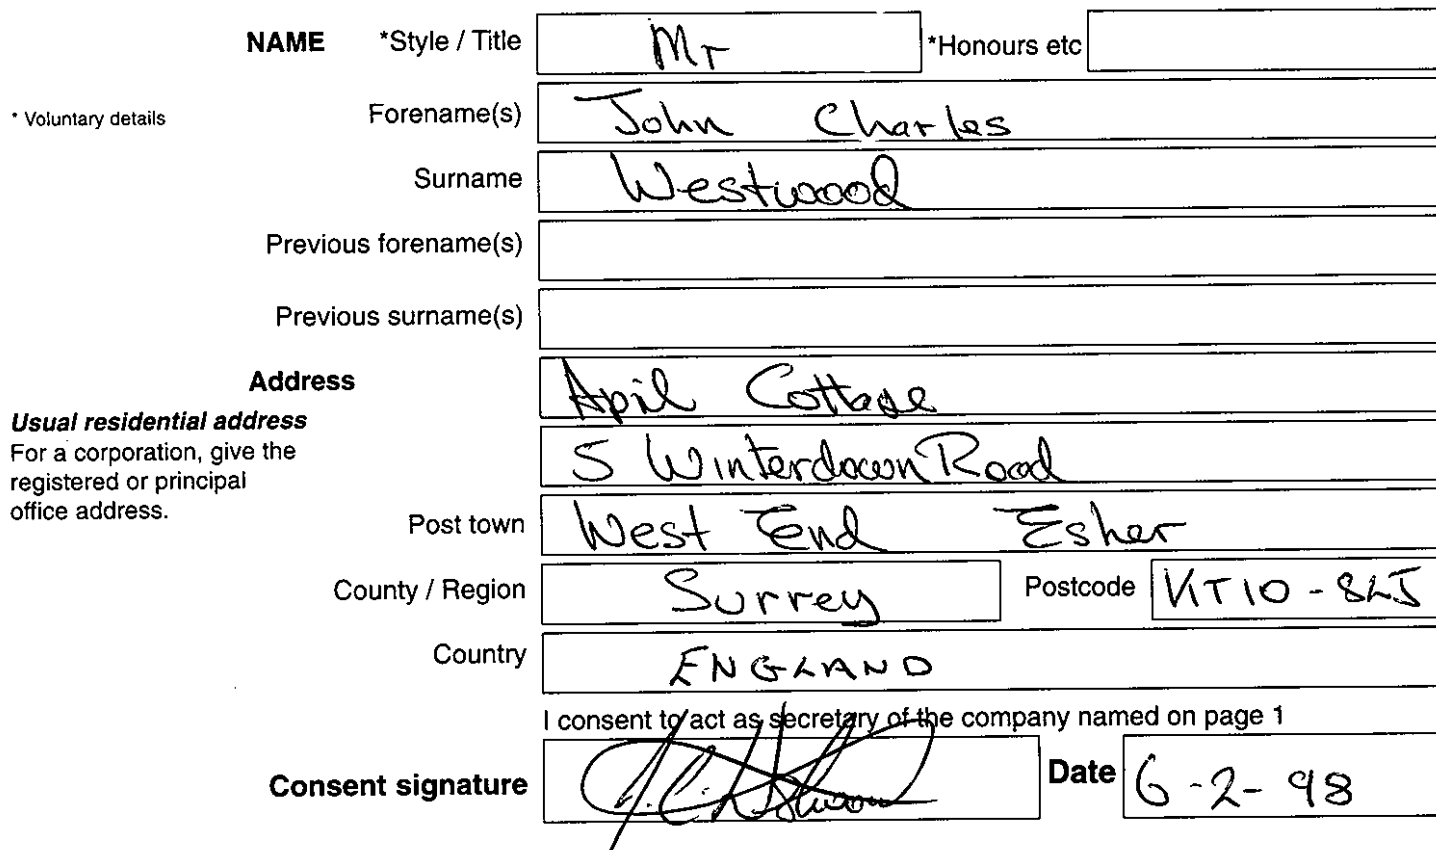 NAME *Style / Title Mr *Honours etc
* Voluntary details Forename(s) John Charles
Surname Westwood
Previous forename(s)
Previous surname(s)
Address April Cottage
Usual residential address
For a corporation, give the
registered or principal
office address.
5 Winterdown Road
Post town West End Esher
County / Region Surrey Postcode KT10-8LJ
Country ENGLAND
I consent to act as secretary of the company named on page 1
Consent signature Date 6-2-98